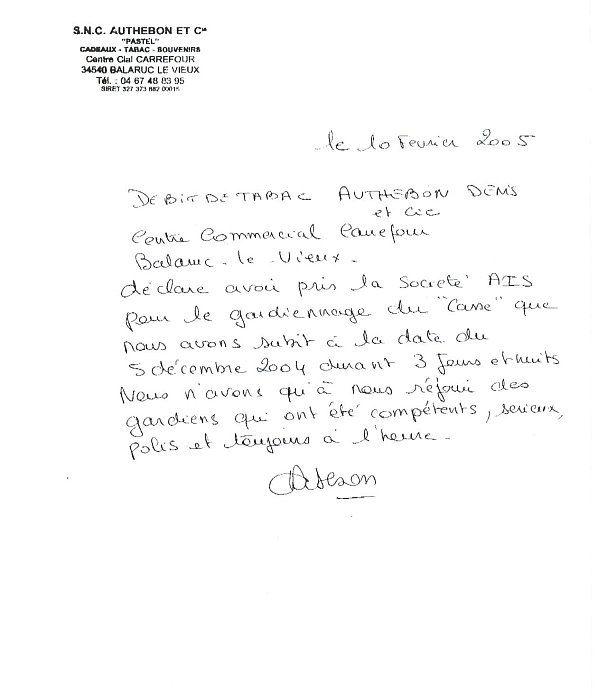 S.N.C. AUTHEBON ET Cie
"PASTEL"
CADEAUX - TABAC - SOUVENIRS
Centre Cial CARREFOUR
34540 BALARUC LE VIEUX
Tél. : 04 67 48 83 95
SIRET 327 373 682 00015
le 10 Fevrier 2005
DEBIT DE TABAC AUTHEBON DENIS
et Cie
Centre Commercial Carrefour
Balaruc - le Vieux -
déclare avoir pris la Societé AIS
pour le gardiennage du "Casse" que
nous avons subit à la date du
5 décembre 2004 durant 3 Jours et nuits
Nous n'avons qu'à nous réjoui des
gardiens qui ont été compétents, serieux,
polis et toujours à l'heure -